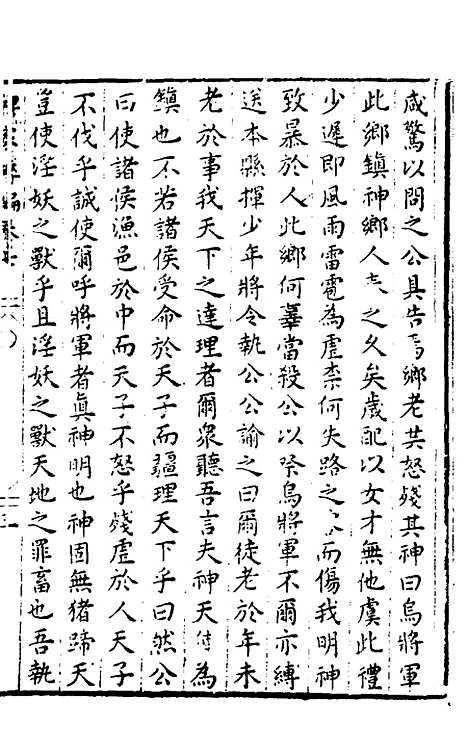 咸驚以問之公具告焉鄉老共怒殘其神曰烏將軍
此鄉鎮神鄉人之久矣歲配以女才無他虞此禮
少遲即風雨雷雹為虐柰何失路之而傷我明神
致暴於人此鄉何辠當殺公以祭烏將軍不爾亦縛
送本縣揮少年將令執公公諭之曰爾徒老於年未
老於事我天下之達理者爾衆聽吾言夫神天為
鎮也不若諸侯受命於天子而疆理天下乎曰然公
曰使諸侯漁邑於中而天子不怒乎殘虐於人天子
不伐乎誠使爾呼將軍者眞神明也神固無猪蹄天
豈使淫妖之獸乎且淫妖之獸天地之罪畜也吾執